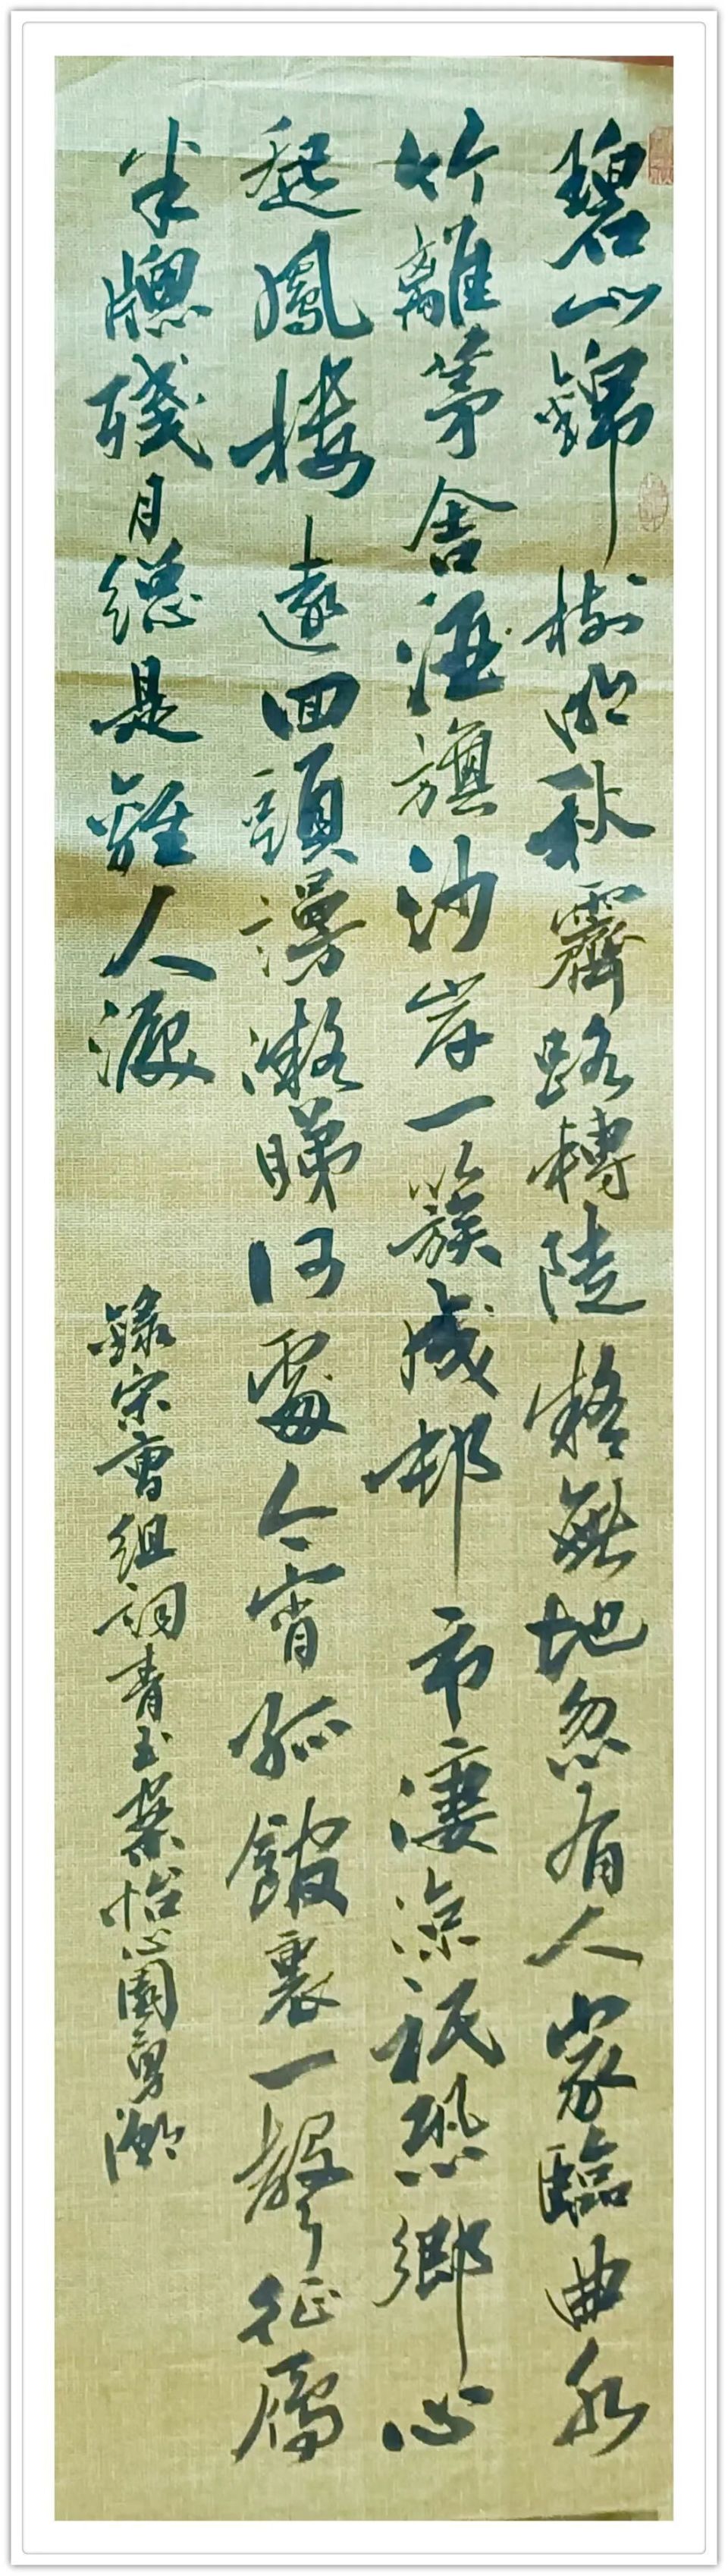 碧山錦樹明秋霽路轉陡疑無地忽有人家臨曲水
竹離茅舍酒旗沙岸一簇成邨市淒涼祇恐鄉心
起鳳樓遠回頭謾凝睇何處今宵孤館裏一聲征鴈
半牕殘月總是離人淚
錄宋曾組詞青玉案怡心園勇